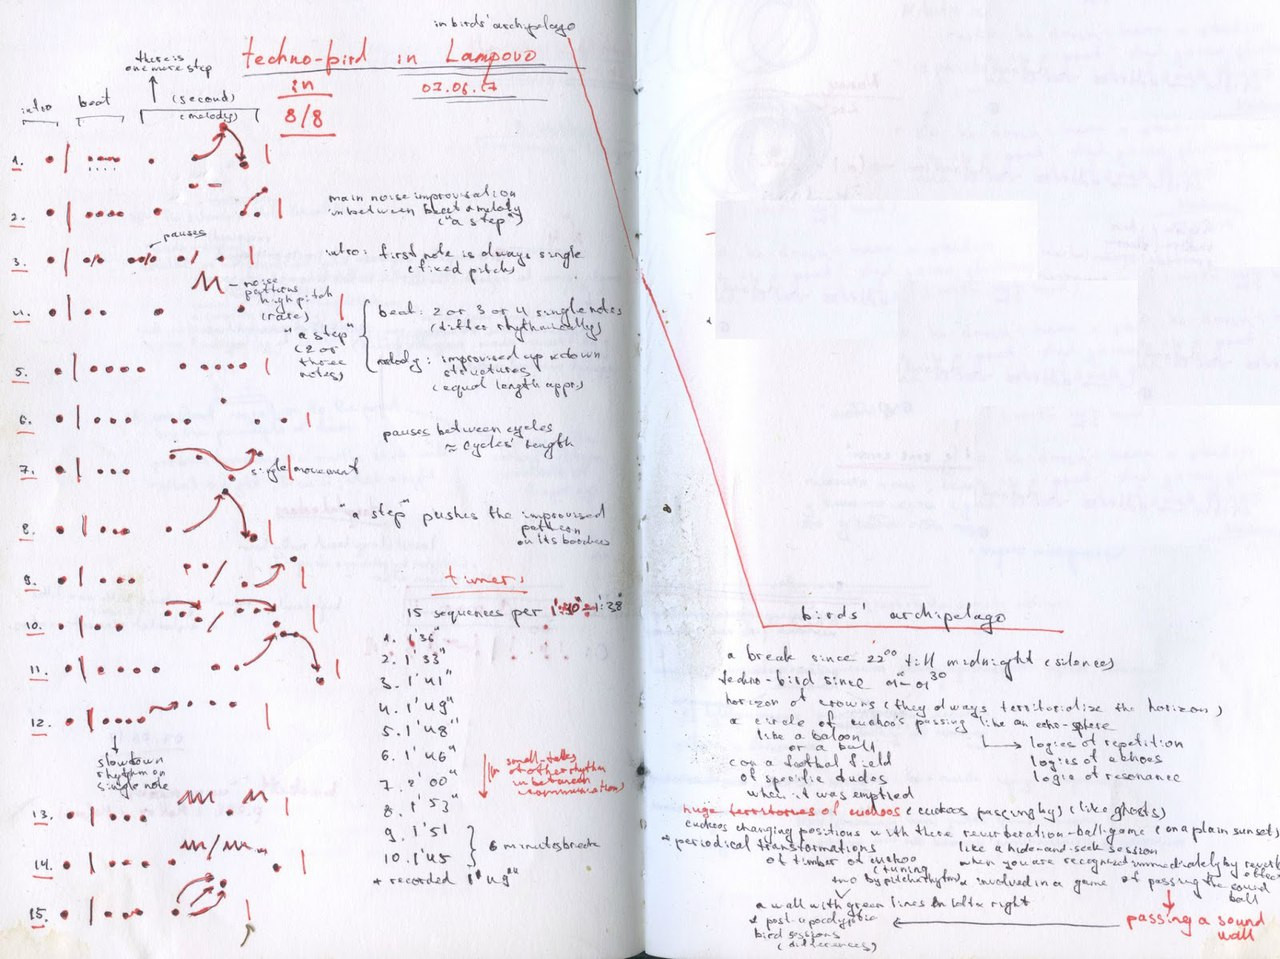 in birds' archipelago
techno-bird in Lampovo
in
8/8
02.06.17
there is
one more step
intro
beat
(second)
(melody)
1.
2.
main noise improvisation
inbetween beat & melody
("a step")
pauses
3.
intro: first note is always single
(fixed pitch)
noise
high pitch
(rare)
4.
"a step"
(2 or
three
notes)
beat: 2 or 3 or 4 single notes
(differ rhythmically)
melody: improvised up & down
structures
(equal length appr.)
5.
6.
pauses between cycles
≈ cycles' length
7.
single movement
8.
"a step" pushes the improvised
pattern
on its borders
9.
timer:
15 sequences per 1':30" = 1':38"
10.
1. 1'36"
2. 1'33"
3. 1'41"
4. 1'49"
5. 1'48"
6. 1'46"
7. 2'00"
8. 1'53"
9. 1'51
10. 1'45
+ recorded 1'49"
small-talks
of other rhythm
in between
communication)
6 minutes break
11.
12.
slowdown
rhythm on
single note
13.
14.
15.
birds' archipelago
a break since 22⁰⁰ till midnight (silence)
techno-bird since 01⁰⁰-01³⁰
horizon of crowns (they always territorialize the horizon)
a circle of cuckoo's passing like an echo-sphere
like a baloon
or a ball
(on a footbal field
of specific dudes
when it was emptied
logics of repetition
logics of echoes
logic of resonance
huge territories of cuckoos (cuckoos passing by) (like ghosts)
cuckoos changing positions with these reverberation-ball-game (on a plain sunset)
+ periodical transformations
of timber of cuckoo
(tuning
like a hide-and-seek session
when you are recognized immediately by reverb
effect
two by pitch & rhythm & involved in a game of passing the sound
ball
a wall with green lines in left & right
& post-apocalyptic
bird sessions
(differences)
passing a sound
wall